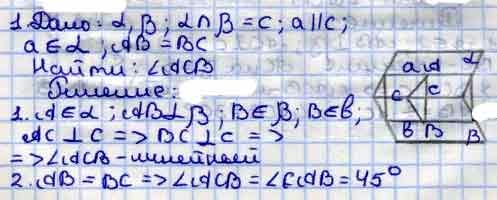 1. Дано: α, β; α∩β = C; a∥c;
a∈α; AB = BC
Найти: ∠ACB
Решение:
1. A∈α; AB⊥β; B∈β; B∈b;
AC⊥C => BC⊥C =>
=> ∠ACB - линейный
2. AB = BC => ∠ACB = ∠CAB = 45°
a A α
C C
b B β